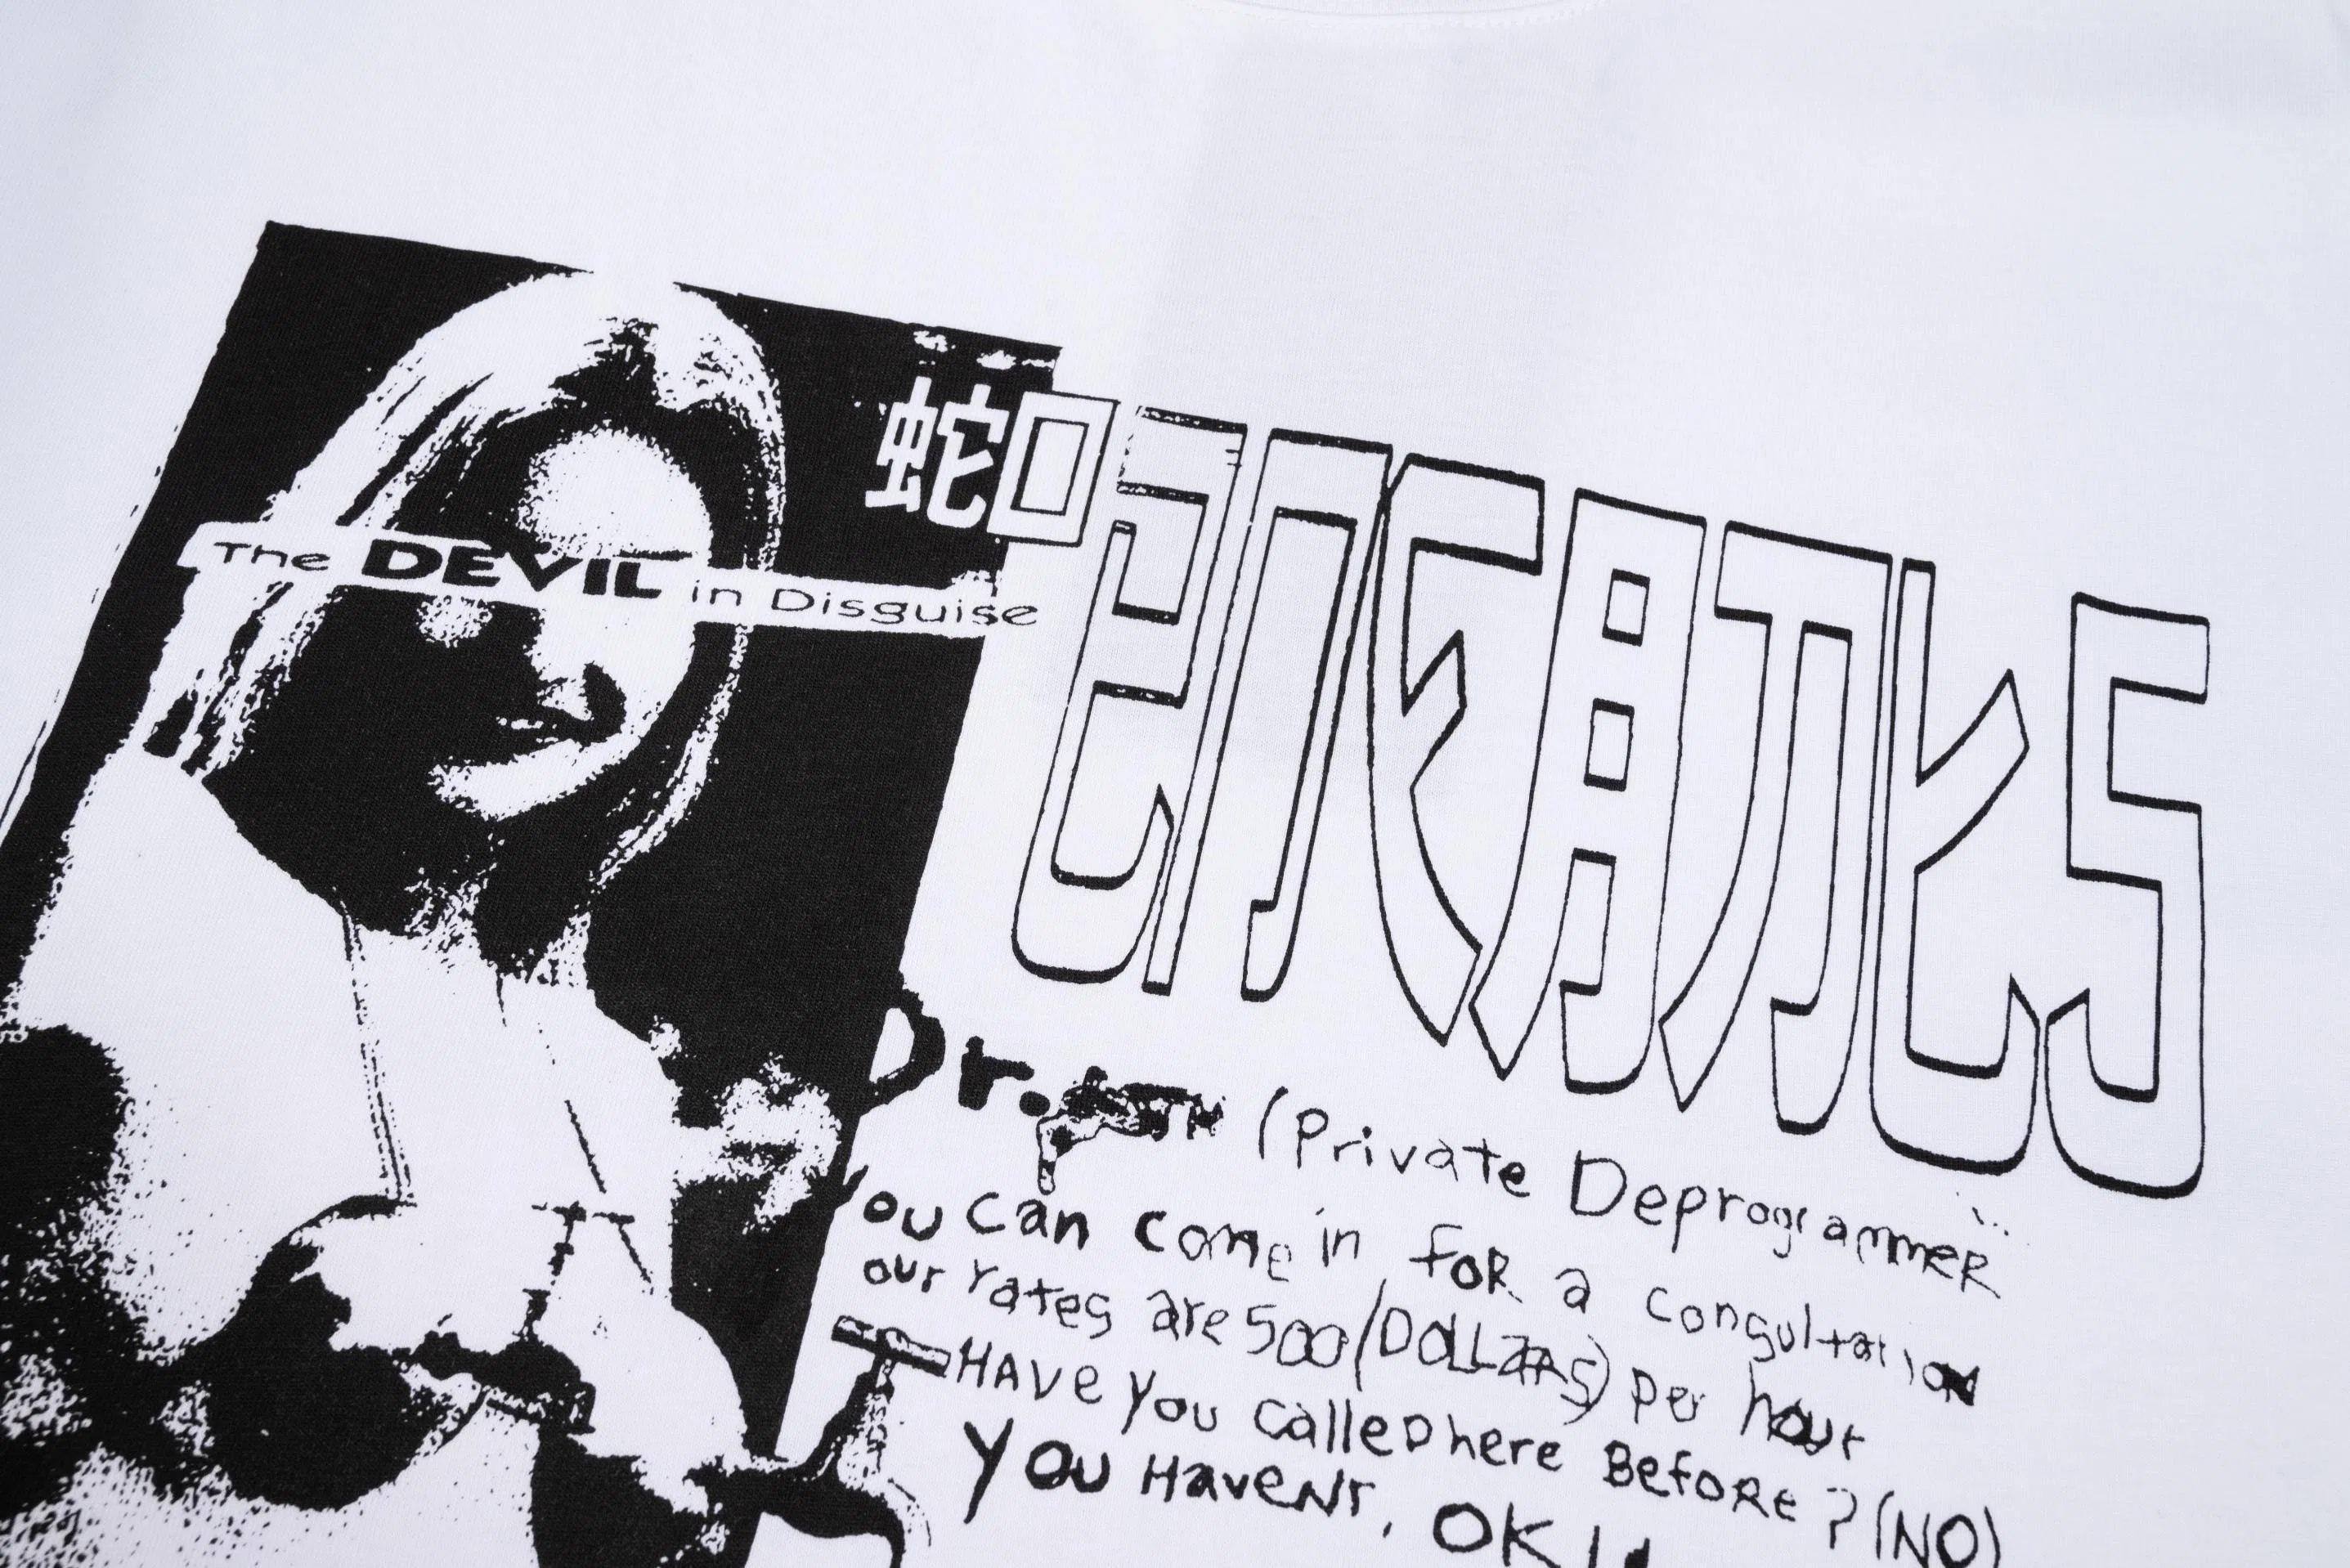 蛇口
The DEVIL in Disguise
Dr. (Private Deprogrammer
You Can come in foR a consultation
our rates are 500 (DOLLARS) per hour
HAVe You CalleD here BefoRe? (NO)
You HaveNt, OK!